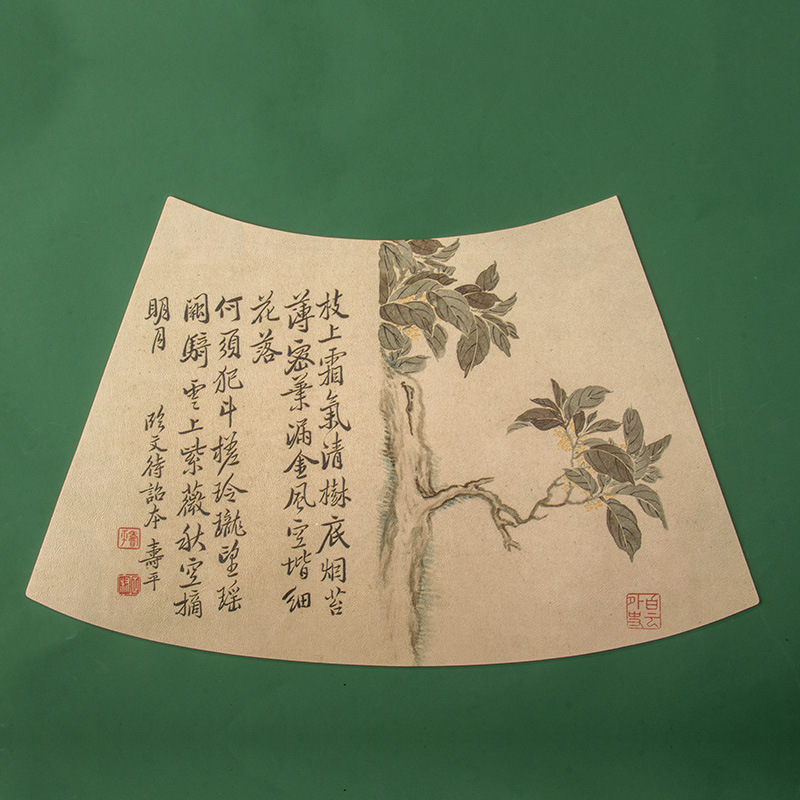 枝上霜氣清樹底烟苔
薄密葉漏金風空堦細
花落
何須犯斗槎玲瓏望瑶
闕騎雲上紫薇秋空摘
明月
臨文待詔本 壽平
白云外史